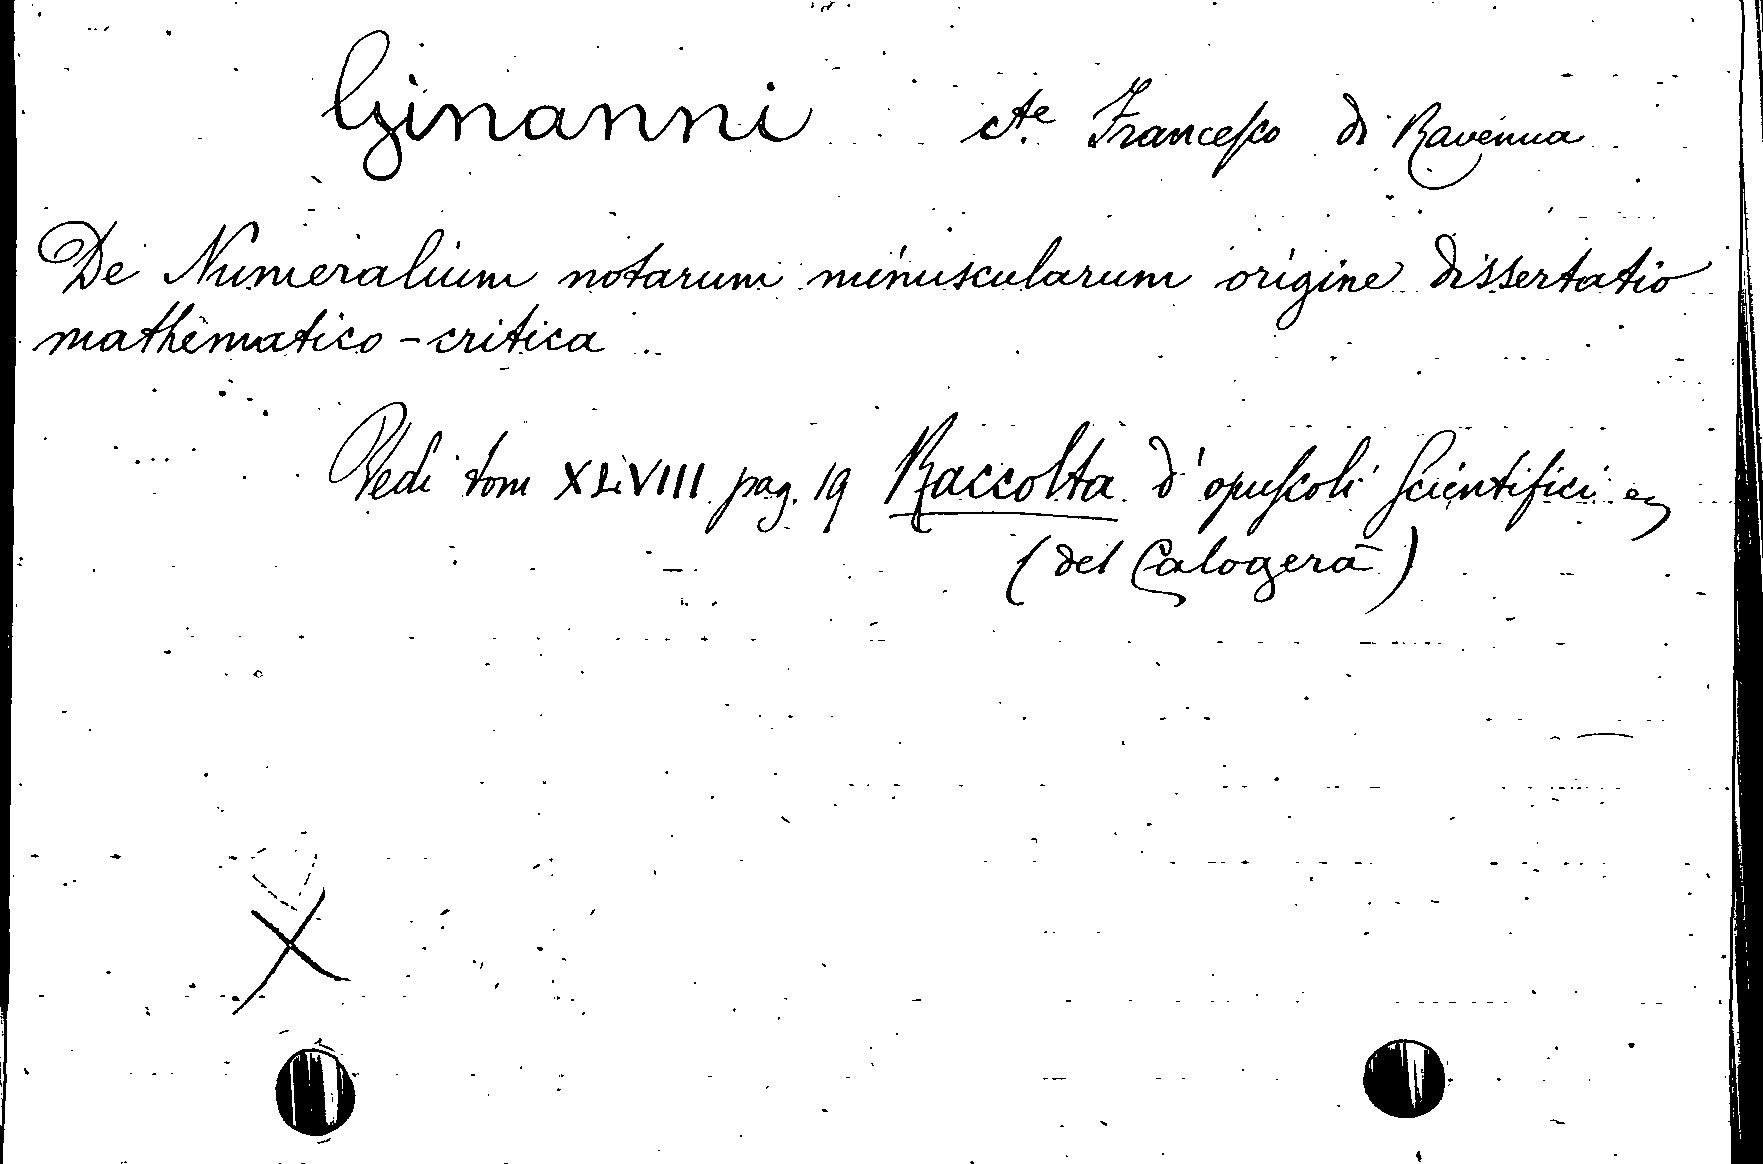 Ginanni cte. Francesco di Ravenna
De Numeralium notarum minuscularum origine dissertatio
mathematico-critica
Vedi tom XLVIII pag. 19 Raccolta d'opuscoli scientifici
(del Calogerà)
X